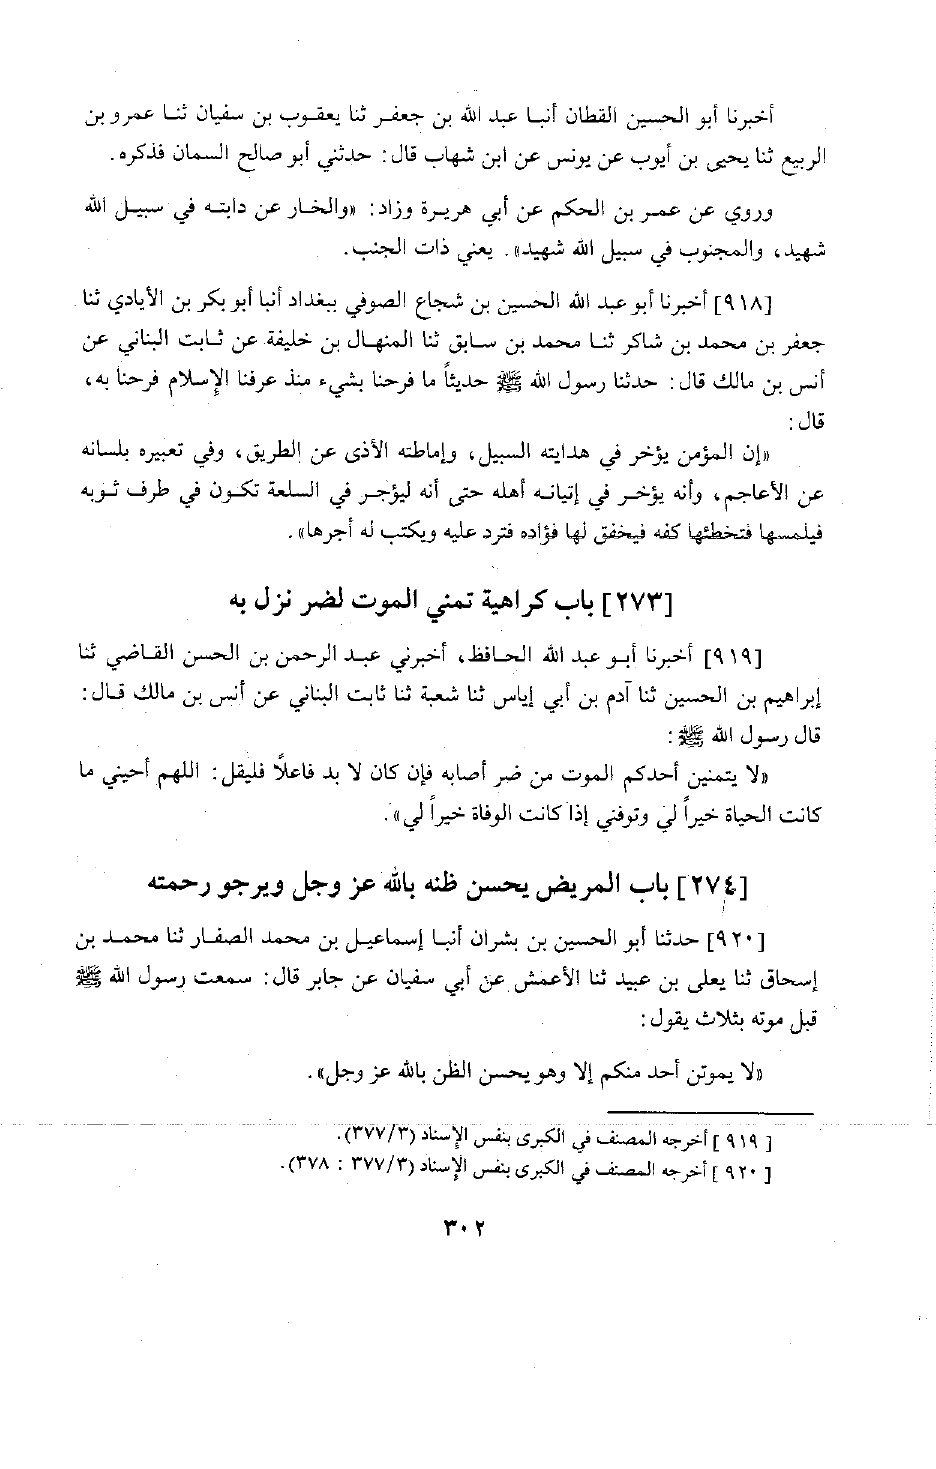 أخبرنا أبو الحسين القطان أنبا عبد الله بن جعفر ثنا يعقوب بن سفيان ثنا عمرو بن
الربيع ثنا يحيى بن أيوب عن يونس عن ابن شهاب قال: حدثني أبو صالح السمان فذكره.
وروي عن عمر بن الحكم عن أبي هريرة وزاد: «والخار عن دابته في سبيل الله
شهيد، والمجنوب في سبيل الله شهيد». يعني ذات الجنب.
[٩١٨] أخبرنا أبو عبد الله الحسين بن شجاع الصوفي ببغداد أنبا أبو بكر بن الأيادي ثنا
جعفر بن محمد بن شاكر ثنا محمد بن سابق ثنا المنهال بن خليفة عن ثابت البناني عن
أنس بن مالك قال: حدثنا رسول الله ﷺ حديثاً ما فرحنا بشيء منذ عرفنا الإسلام فرحنا به،
قال:
«إن المؤمن يؤخر في هدايته السبيل، وإماطته الأذى عن الطريق، وفي تعبيره بلسانه
عن الأعاجم، وأنه يؤخر في إتيانه أهله حتى أنه ليؤجر في السلعة تكون في طرف ثوبه
فيلمسها فتخطئها كفه فيخفق لها فؤاده فترد عليه ويكتب له أجرها».
[٢٧٣] باب كراهية تمني الموت لضر نزل به
[٩١٩] أخبرنا أبو عبد الله الحافظ، أخبرني عبد الرحمن بن الحسن القاضي ثنا
إبراهيم بن الحسين ثنا آدم بن أبي إياس ثنا شعبة ثنا ثابت البناني عن أنس بن مالك قال:
قال رسول الله ﷺ:
«لا يتمنين أحدكم الموت من ضر أصابه فإن كان لا بد فاعلاً فليقل: اللهم أحيني ما
كانت الحياة خيراً لي وتوفني إذا كانت الوفاة خيراً لي».
[٢٧٤] باب المريض يحسن ظنه بالله عز وجل ويرجو رحمته
[٩٢٠] حدثنا أبو الحسين بن بشران أنبا إسماعيل بن محمد الصفار ثنا محمد بن
إسحاق ثنا يعلى بن عبيد ثنا الأعمش عن أبي سفيان عن جابر قال: سمعت رسول الله ﷺ
قبل موته بثلاث يقول:
«لا يموتن أحد منكم إلا وهو يحسن الظن بالله عز وجل».
[٩١٩] أخرجه المصنف في الكبرى بنفس الإسناد (٣٧٧/٣).
[٩٢٠] أخرجه المصنف في الكبرى بنفس الإسناد (٣٧٧/٣ : ٣٧٨).
٣٠٢